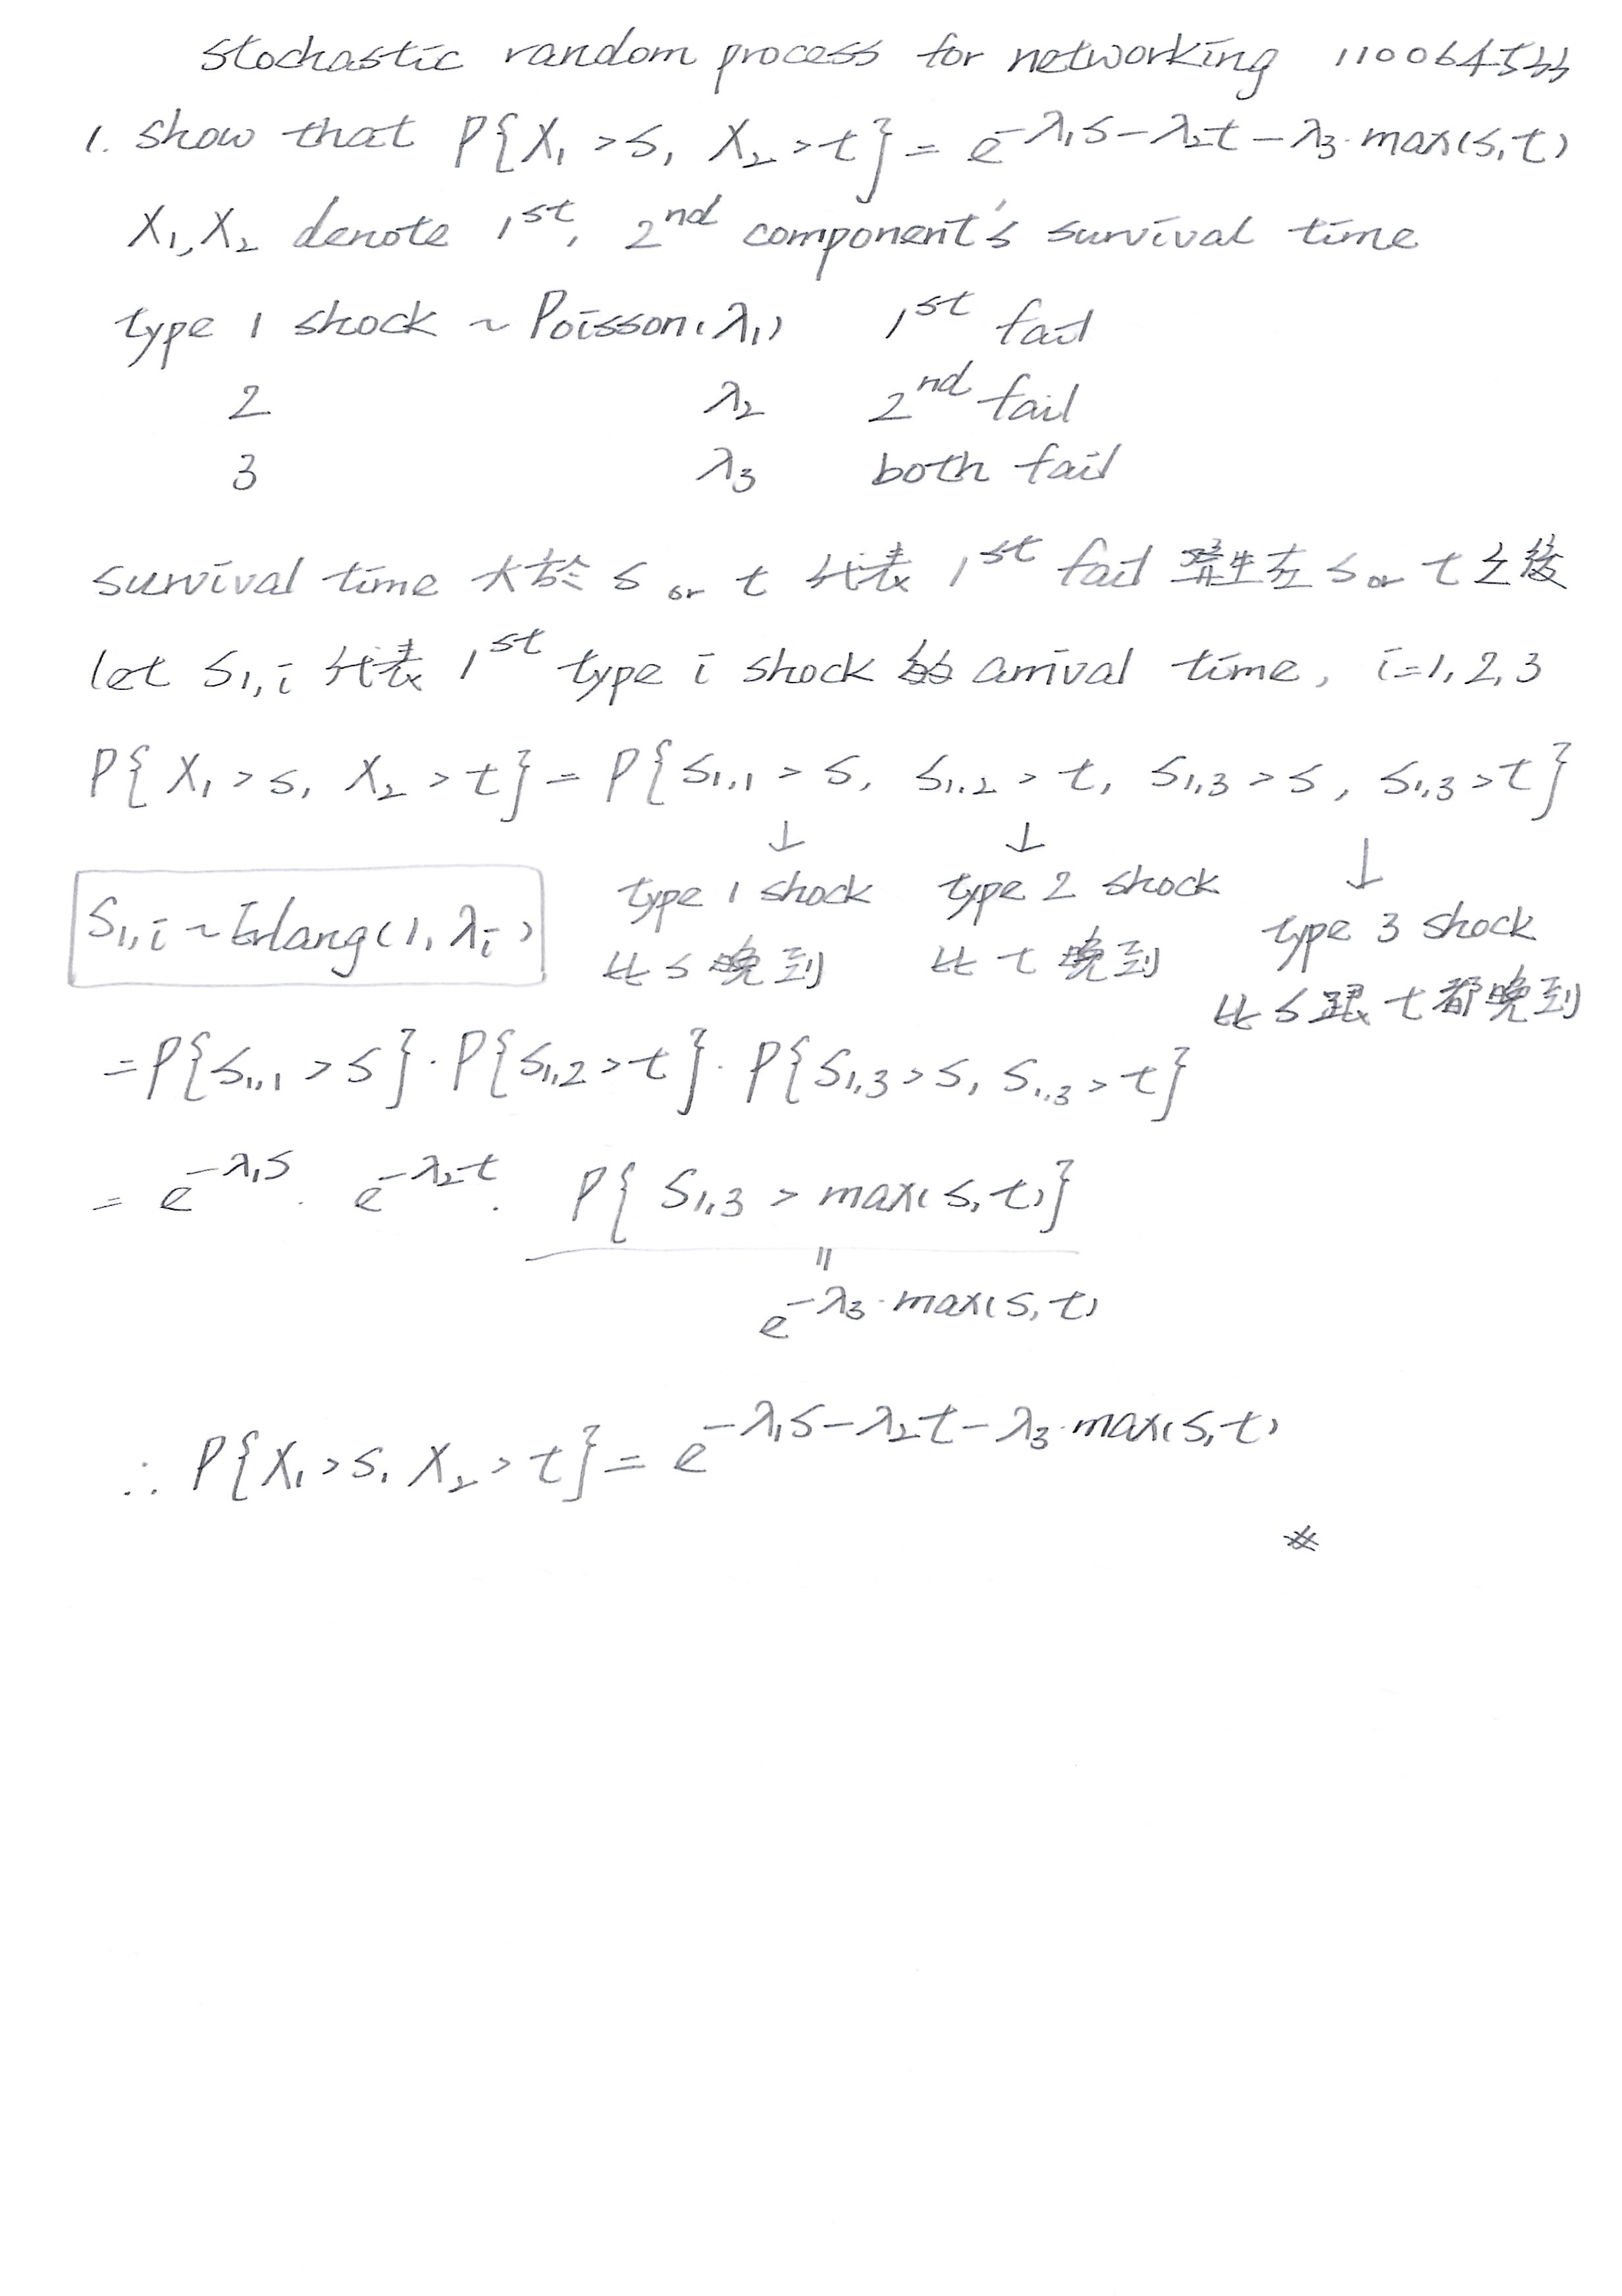 stochastic random process for networking 110064533
1. show that P{X₁ > s, X₂ > t} = e^{-λ₁s-λ₂t-λ₃·max(s,t)}
X₁, X₂ denote 1st, 2nd component's survival time
type 1 shock ~ Poisson(λ₁) 1st fail
2 λ₂ 2nd fail
3 λ₃ both fail
survival time 大於 s or t 代表 1st fail 發生在 s or t 之後
let S₁,i 代表 1st type i shock 的 arrival time, i=1,2,3
P{X₁ > s, X₂ > t} = P{S₁,₁ > s, S₁,₂ > t, S₁,₃ > s, S₁,₃ > t}
↓ ↓ ↓
S₁,i ~ Erlang(1, λi) type 1 shock type 2 shock type 3 shock
比 s 晚到 比 t 晚到 比 s 跟 t 都晚到
= P{S₁,₁ > s}·P{S₁,₂ > t}·P{S₁,₃ > s, S₁,₃ > t}
= e^{-λ₁s} · e^{-λ₂t} · P{S₁,₃ > max(s,t)}
=
e^{-λ₃·max(s,t)}
∴ P{X₁ > s, X₂ > t} = e^{-λ₁s-λ₂t-λ₃·max(s,t)}
#